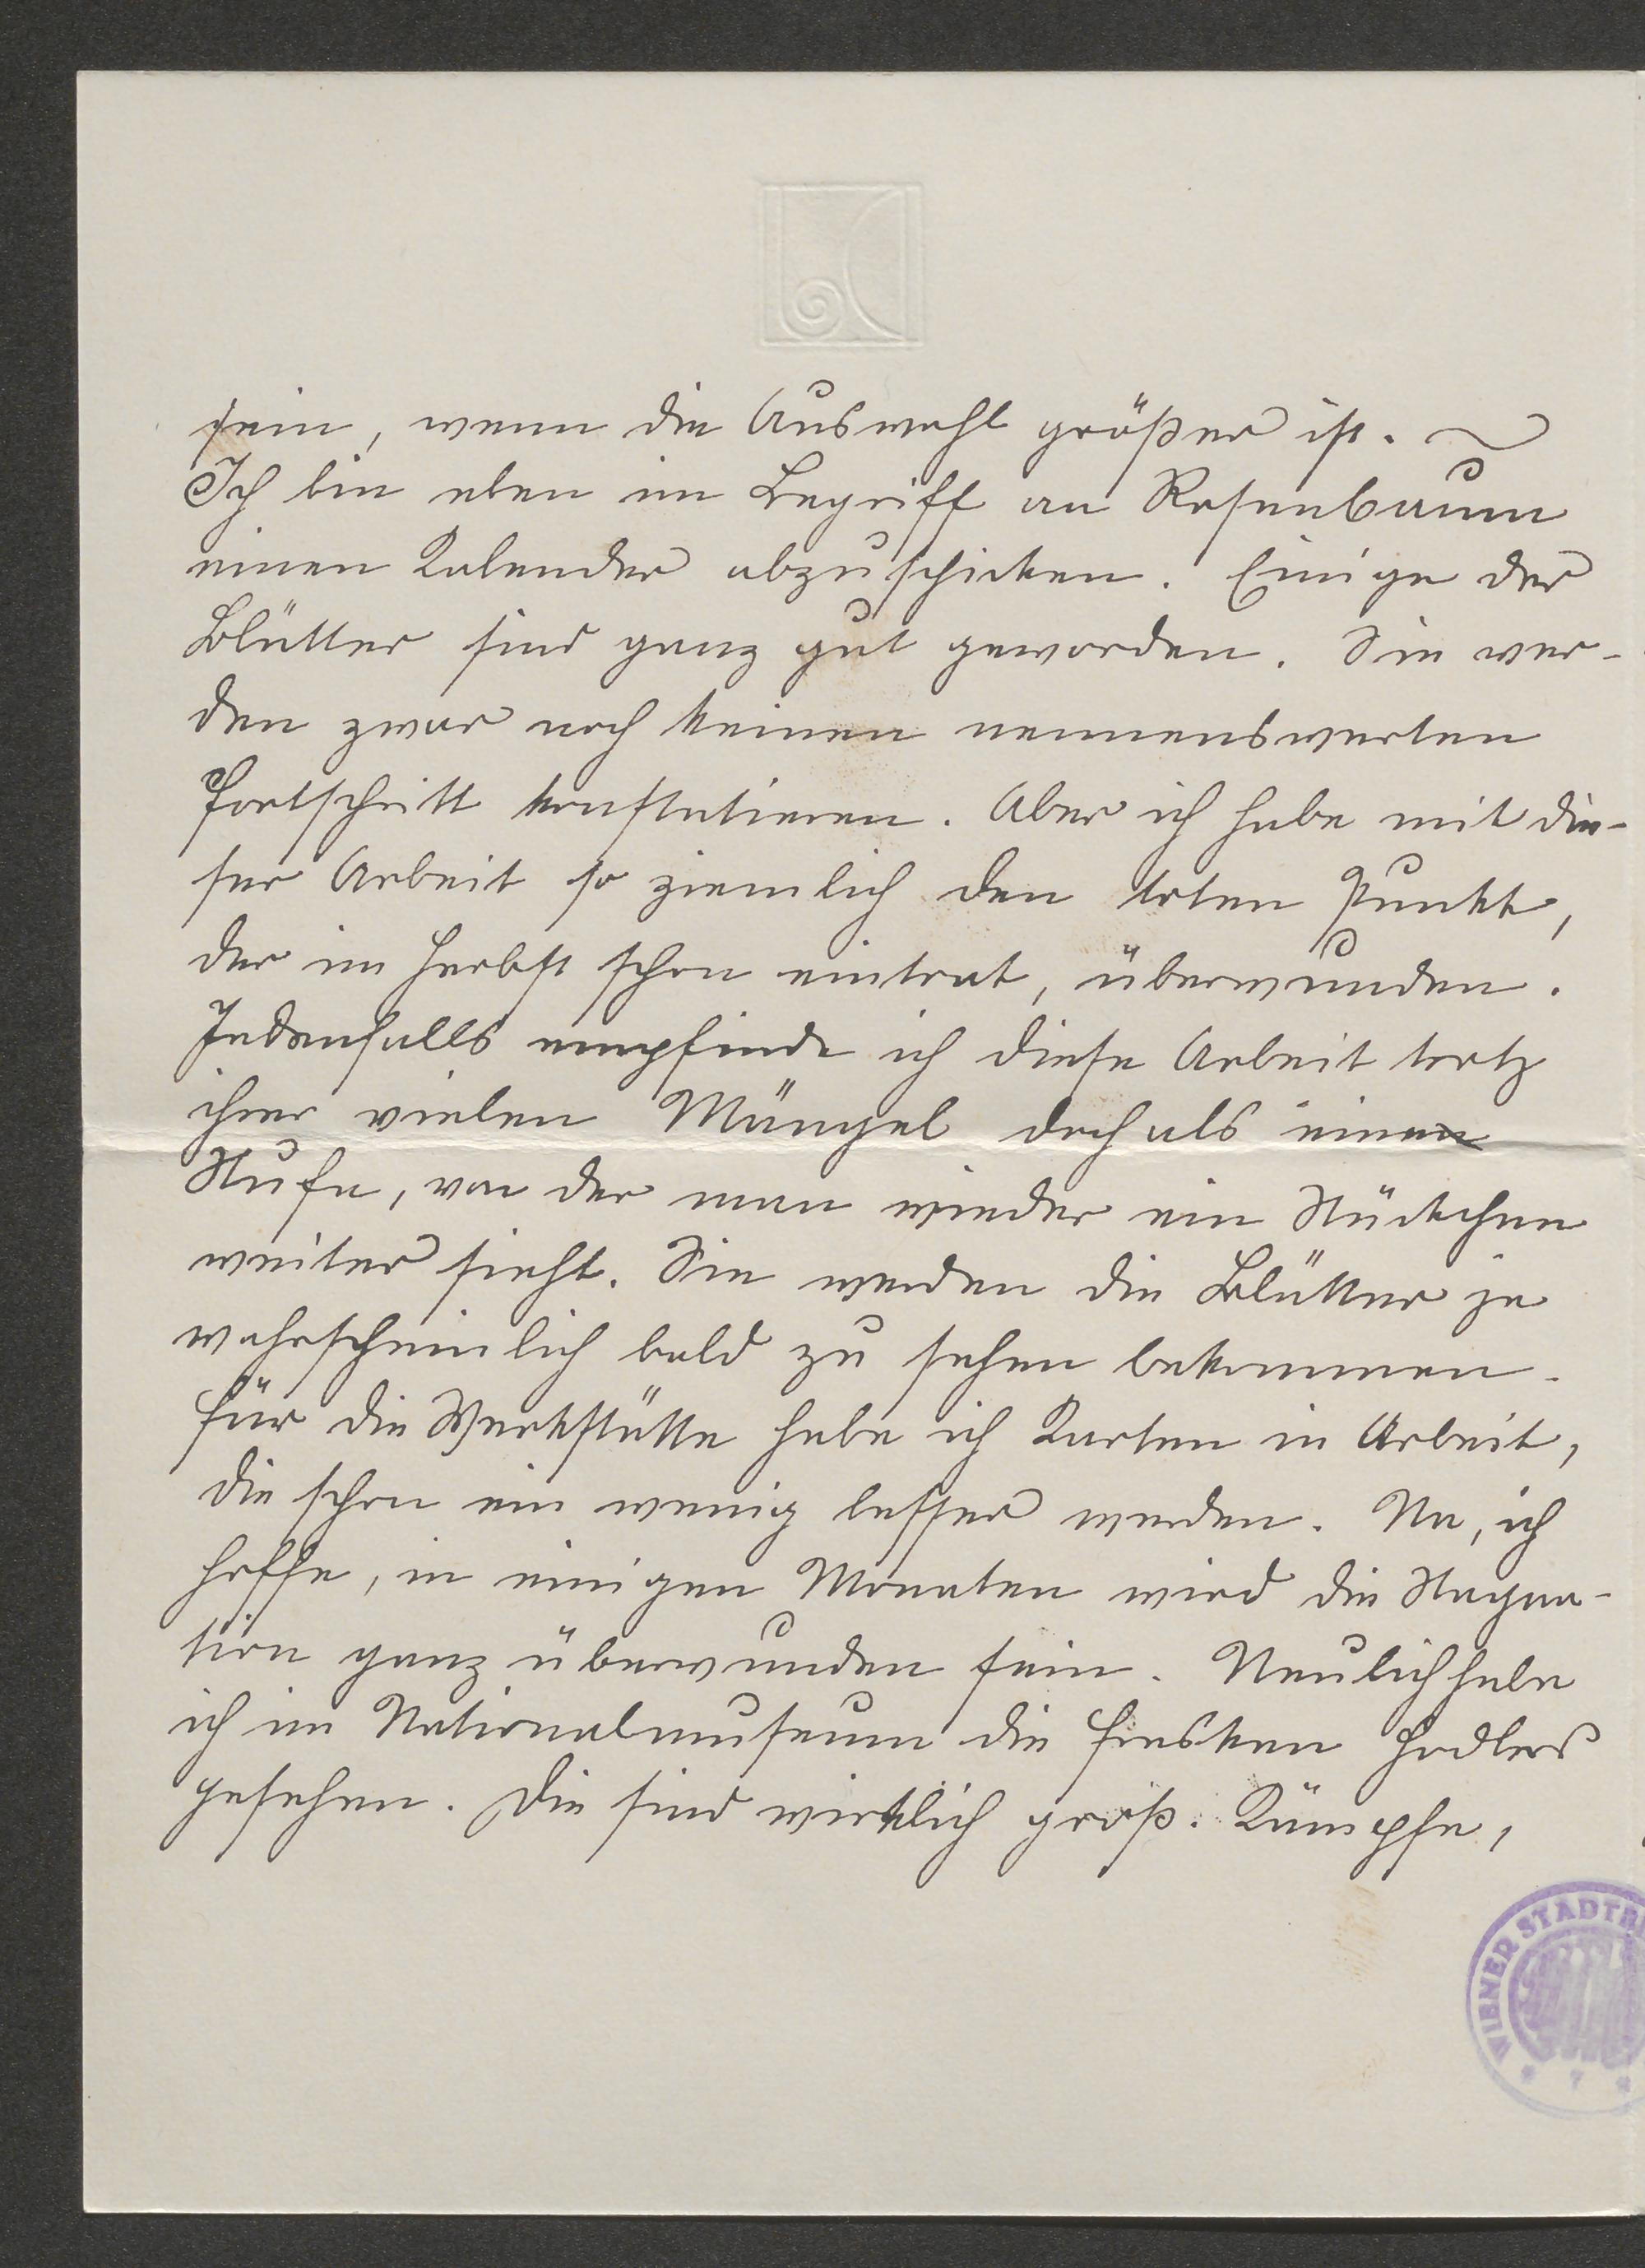 sein, wenn die Auswahl größer ist. ~
Ich bin eben im Begriff an Rosenbaum
einen Kalender abzuschicken. Einige der
Blätter sind ganz gut geworden. Sie wer-
den zwar noch keinen nennenswerten
Fortschritt konstatieren. Aber ich habe mit die-
ser Arbeit so ziemlich den toten Punkt,
der im Herbst schon eintrat, überwunden.
Jedenfalls empfinde ich diese Arbeit trotz
ihrer vielen Mängel doch als eine
Stufe, von der man wieder ein Stückchen
weiter sieht. Sie werden die Blätter ja
wahrscheinlich bald zu sehen bekommen.
Für die Werkstätte habe ich Karten in Arbeit,
die schon ein wenig besser werden. Na, ich
hoffe, in einigen Monaten wird die Stagna-
tion ganz überwunden sein. Neulich habe
ich im Nationalmuseum die Fresken Hodlers
gesehen. Die sind wirklich groß. Kämpfe,
WIENER STADTB